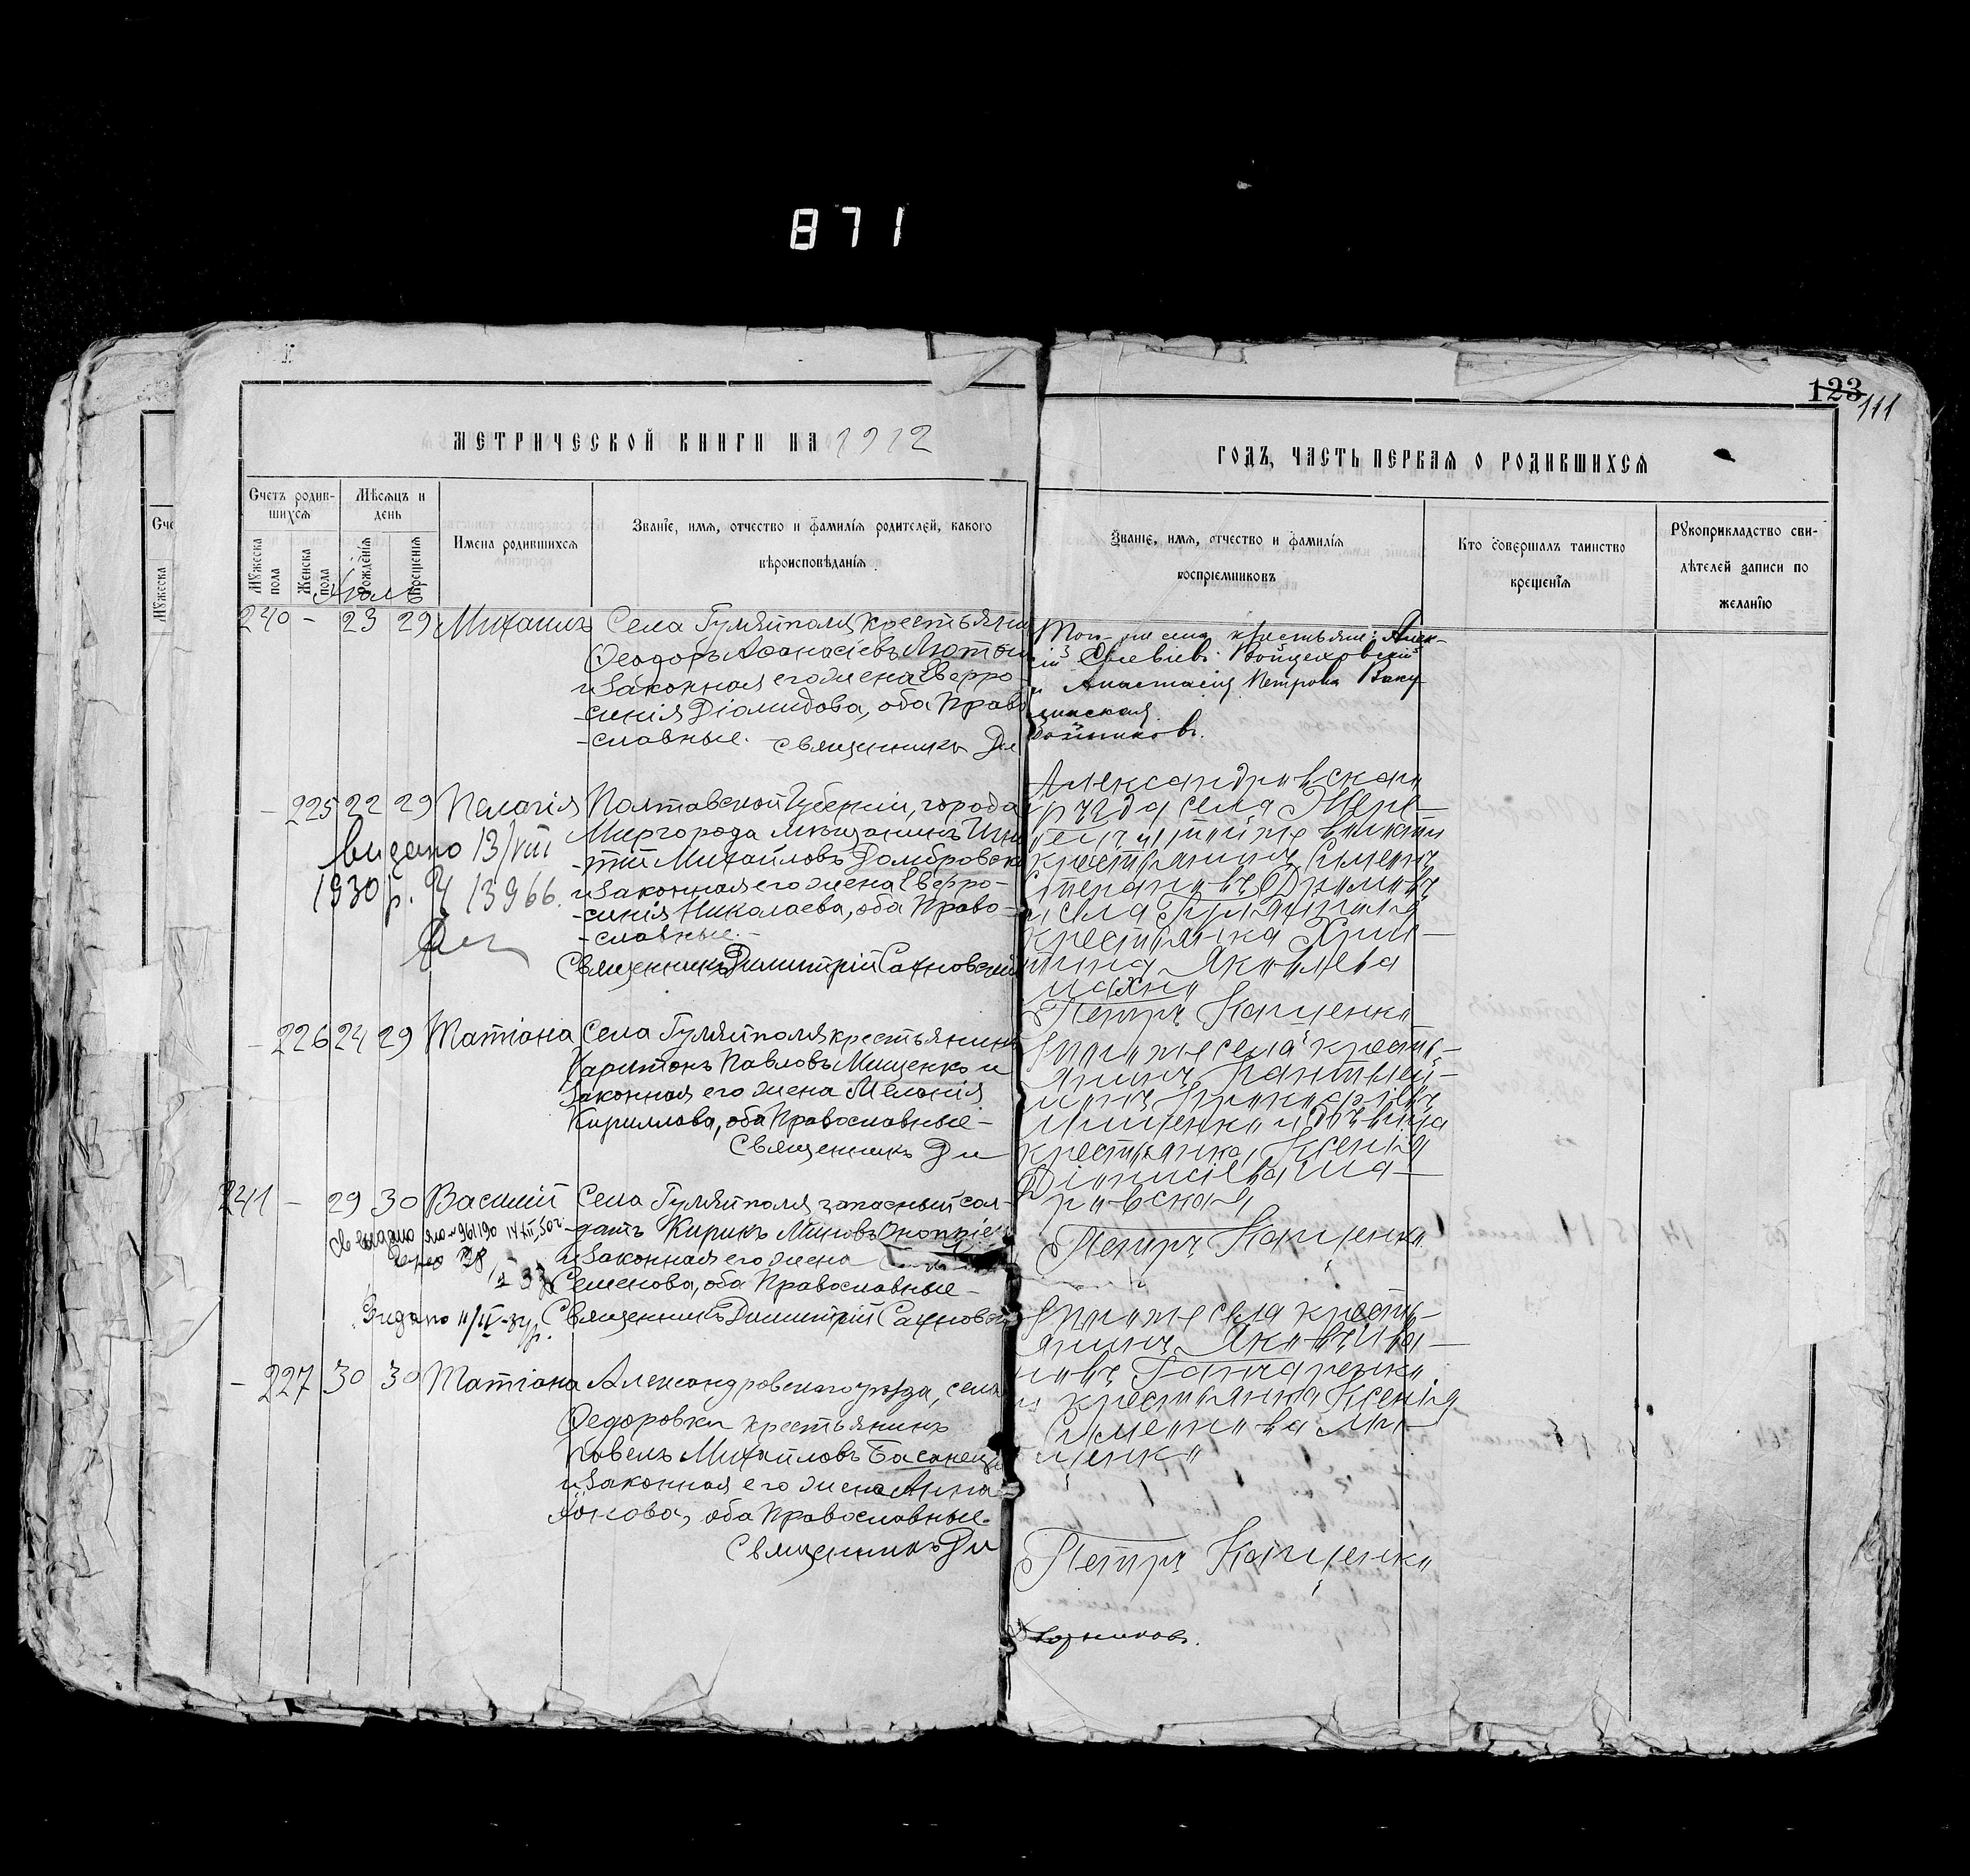 871
123
111
МЕТРИЧЕСКОЙ КНИГИ НА 1912
ГОДЪ, ЧАСТЬ ПЕРВАЯ О РОДИВШИХСЯ
Счетъ родив-
шихся
Мѣсяцъ и
день
Мужеска
пола
Женска
пола
Рожденія
Крещенія
Имена родившихся
Званіе, имя, отчество и фамилія родителей, какого
вѣроисповѣданія
Званіе, имя, отчество и фамилія
воспріемниковъ
Кто совершалъ таинство
крещенія
Рукоприкладство сви-
дѣтелей записи по
желанію
Іюль
240 - 23 29 Михаилъ Села Гуляйполя крестьянин
Ѳеодоръ Аѳанасіевъ Лютый
и законная его жена Евфро
-синія Діомидова, оба Право
-славные. Священникъ Ди
Того-же села крестьяне: Алек-
сій Войцеховскій
и Анастасія Петрова
- 225 22 29 Пелагія Полтавской Губерніи, города
Миргорода мѣщанинъ Игна
-тій Михайловъ Домбровск
и законная его жена Евфро-
-синія Николаева, оба Право-
-славные.-
Священникъ Димитрій Сахновскій
видано 13/VIII
1930 р. Ч 13966.
Александровскаго
уѣзда села Жере-
крестьянинъ Сѵмеонъ
Степановъ
и села Гуляйполя
крестьянка Хрис-
тина Яковлева
Махно
Петръ Кащенко
- 226 24 29 Татіана Села Гуляйполя крестьянинъ
Харитонъ Павловъ Мищенко и
законная его жена Меланія
Кириллова, оба Православные-
Священникъ Ди
Того же села кресть-
янинъ Пантелей-
Мищенко и дѣвица
крестьянка Ксенія
Діонисіева Ша-
ровская
Петръ Кащенко
241 - 29 30 Василій Села Гуляйполя запасный сол-
-датъ Кирикъ Миновъ Оноприен
и законная его жена
Семенова, оба Православные-
Священникъ Димитрій Сахновскій
Видано 11/IV-34 р.
Того же села кресть-
янинъ Яковъ Ива-
новъ Гончаренко
и крестьянка Ксенія
Сѵмеонова Ми-
щенко
Петръ Кащенко
- 227 30 30 Татіана Александровскаго уѣзда, села
Федоровки крестьянинъ
Павелъ Михайловъ Басанец
и законная его жена Анна
оба Православные.
Священникъ Ди